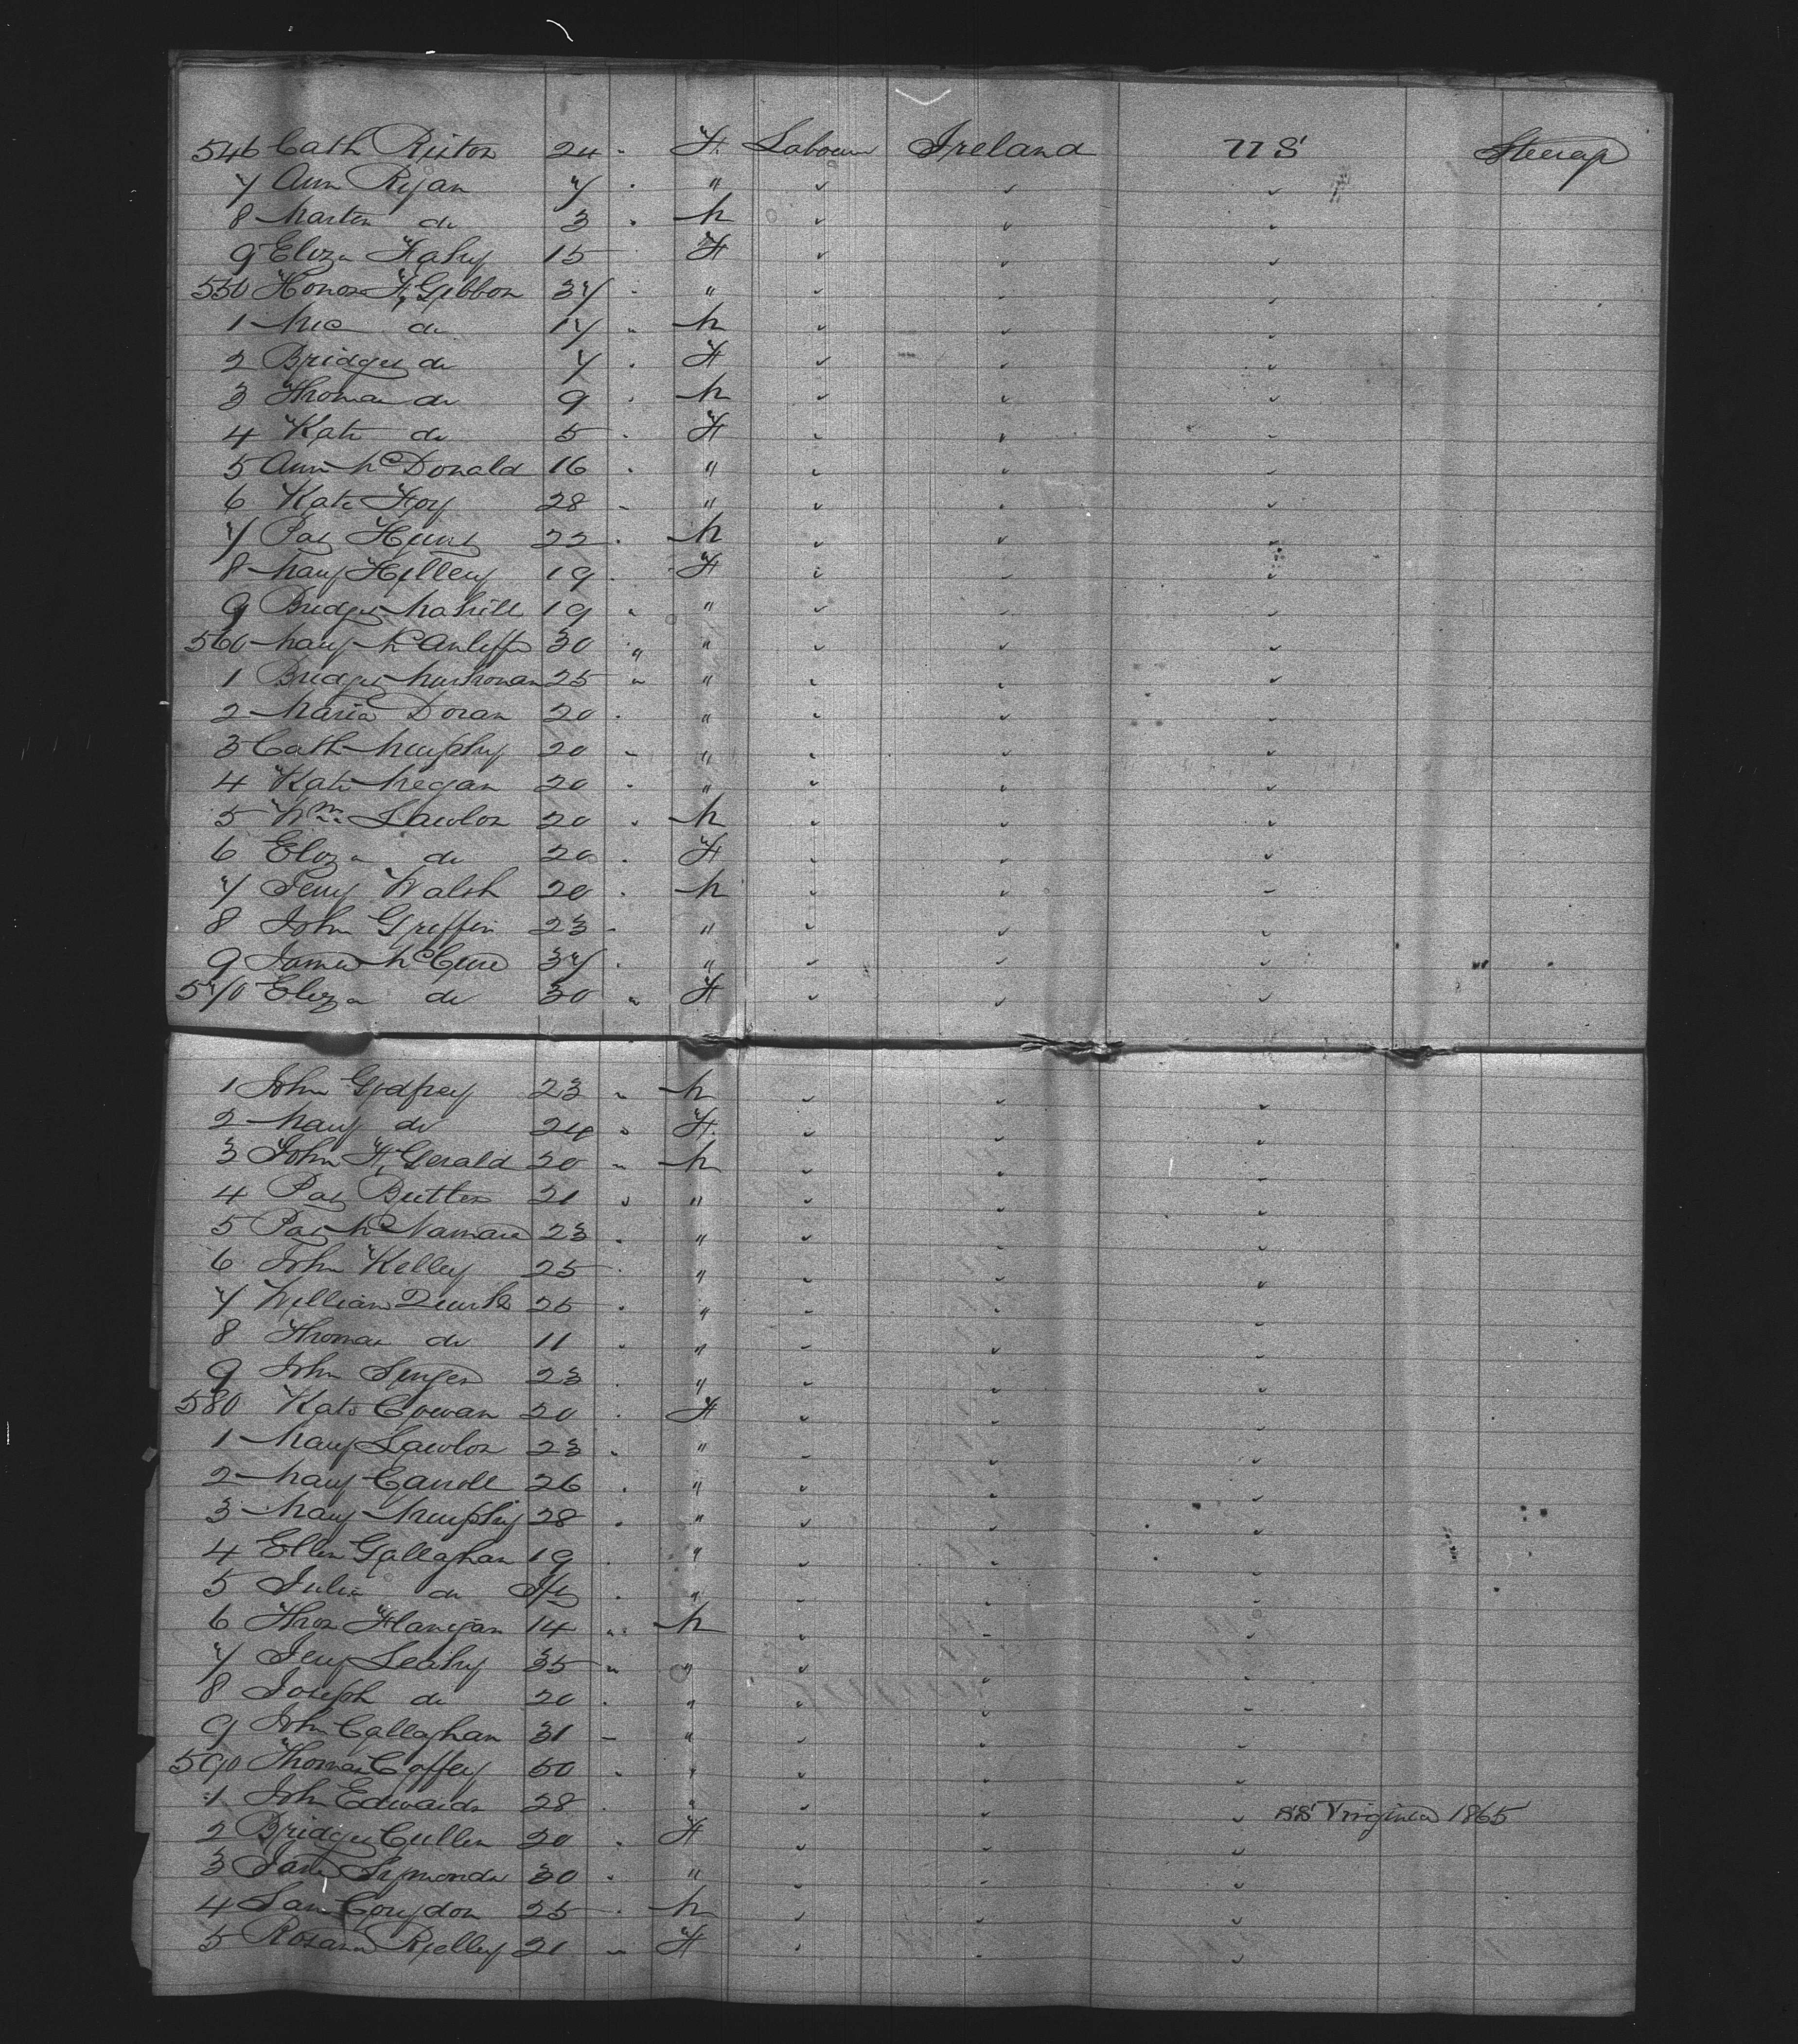 546 Cath Rixton 24 " F. Labourer Ireland U S Steerage
7 Ann Ryan 7 " "
8 Martin do 3 " M
9 Eliza Fahy 15 F
550 Honora F,Gibbon 37 " "
1 Mic do 17 " M
2 Bridget do 7 " F
3 Thomas do 9 " M
4 Kate do 5 " F
5 Ann McDonald 16 " "
6 Kate Foy 28 " "
7 Pat Hunt 22 " M
8 Mary Hilley 19 " F
9 Bridget Mahill 19 " "
560 Mary McAnliffe 30 " "
1 Bridget 25 " "
2 Maria Doran 20 " "
3 Cath Murphy 20 " "
4 Kate Megan 20 " "
5 Wm Lawlor 20 " M
6 Eliza do 20 " F
7 Perry Walsh 20 " M
8 John Griffin 23 " "
9 James McCure 37 " "
570 Eliza do 30 " F
1 John Godfrey 23 " M
2 Mary do 24 " F.
3 John F,Gerald 20 " M
4 Pat Butler 21 " "
5 Pat McNamara 23 " "
6 John Kelley 25 " "
7 William Quirke 25 " "
8 Thomas do 11 " "
9 John 23 " "
580 Kate Cowan 20 " F
1 Mary Lawlor 23 " "
2 Mary Carroll 26 " "
3 Mary Murphy 28 " "
4 Ellen Gallaghan 19 " "
5 Julia do Inf " "
6 Thos Flanigan 14 " M
7 Jerry Leahy 35 " "
8 Joseph do 20 " "
9 John Callaghan 31 " "
590 Thomas Coffey 50 " "
1 John Edwards 28 " " SS Virginia 1865
2 Bridget Cullen 20 " F
3 Jane Symonds 30 " "
4 Corydon 25 " M
5 Rosana Rielley 21 " F